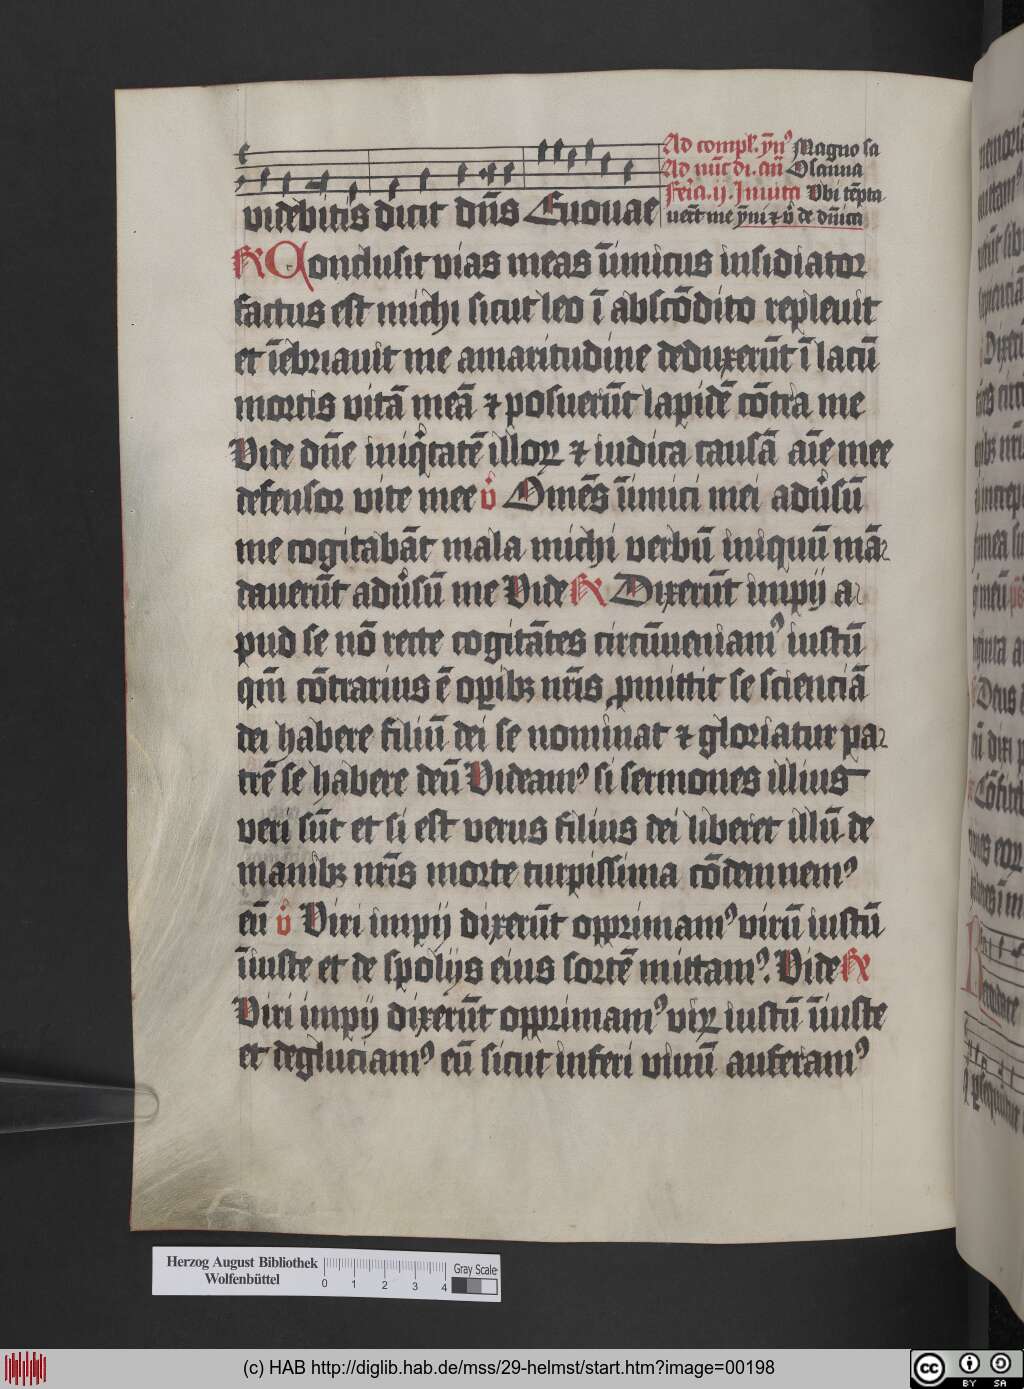 Ad compl. ẏn᷒ Magno sa
Ad nūc di. añ Osanna
Feria. ij. Inuita Vbi tēpta
videbitis dicit dn̄s Euouae uer̄t me ẏni ⁊ v̊ de dn̄ica
R̸ Conclusit vias meas īimicus insidiator
factus est michi sicut leo ī abscōdito repleuit
et īebriauit me amaritudine deduxerūt ī lacū
mortis vitā meā ⁊ posuerūt lapidē cōtra me
Vide dn̄e iniqͥtatē illoꝝ ⁊ iudica causā aīe mee
defensor vite mee v̊ Om̄es īimici mei adu̾sū
me cogitabāt mala michi verbū iniquū mā-
dauerūt adu̾sū me Vide R̸ Dixerūt impij a-
pud se nō recte cogitātes circūueniamꝰ iustū
qm̄ cōtrarius ē oꝑibꝫ nr̄is ꝓmittit se scienciā
dei habere filiū dei se nominat ⁊ gloriatur pa-
trē se habere deū Videamꝰ si sermones illius
veri sūt et si est verus filius dei liberet illū de
manibꝫ nr̄is morte turpissima cōdemnemꝰ
eū v̊ Viri impij dixerūt opprimamꝰ virū iustū
īiuste et de spolijs eius sortē mittamꝰ. Vide R̸
Viri impij dixerūt opprimamꝰ viꝝ iustū īiuste
et degluciamꝰ eū sicut inferi viuū auferamꝰ
Herzog August Bibliothek
Wolfenbüttel
0 1 2 3 4
Gray Scale
(c) HAB http://diglib.hab.de/mss/29-helmst/start.htm?image=00198
cc BY SA